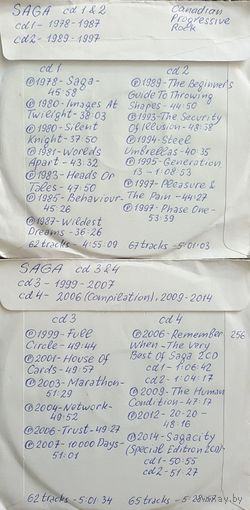 SAGA cd 1&2
cd1 - 1978-1987
cd2 - 1989-1997
Canadian
Progressive
Rock
cd1
℗1978-Saga-
45:58
℗1980-Images At
Twilight-38:03
℗1980-Silent
Knight-37:50
℗1981-Worlds
Apart-43:32
℗1983-Heads Or
Tales-47:50
℗1985-Behaviour-
45:26
℗1987-Wildest
Dreams-36:26
62 tracks-4:55:09
cd2
℗1989-The Beginner's
Guide To Throwing
Shapes-44:50
℗1993-The Security
Of Illusion-48:58
℗1994-Steel
Umbrellas-40:35
℗1995-Generation
13-1:08:53
℗1997-Pleasure &
The Pain-44:27
℗1997-Phase One-
53:39
67 tracks-5:01:03
SAGA cd 3&4
cd3 - 1999-2007
cd4 - 2006 (Compilation), 2009-2014
cd3
℗1999-Full
Circle-49:44
℗2001-House Of
Cards-49:57
℗2003-Marathon-
51:29
℗2004-Network-
49:52
℗2006-Trust-49:27
℗2007-10000 Days-
51:01
62 tracks-5:01:34
cd4
℗2006-Remember
When-The Very
Best Of Saga 2CD
cd1-1:06:42
cd2-1:04:17
℗2009-The Human
Condition-47:17
℗2012-20-20-
48:16
℗2014-Sagacity
(Special Edition 2CD)-
cd1-50:55
cd2-51:27
65 tracks-
256